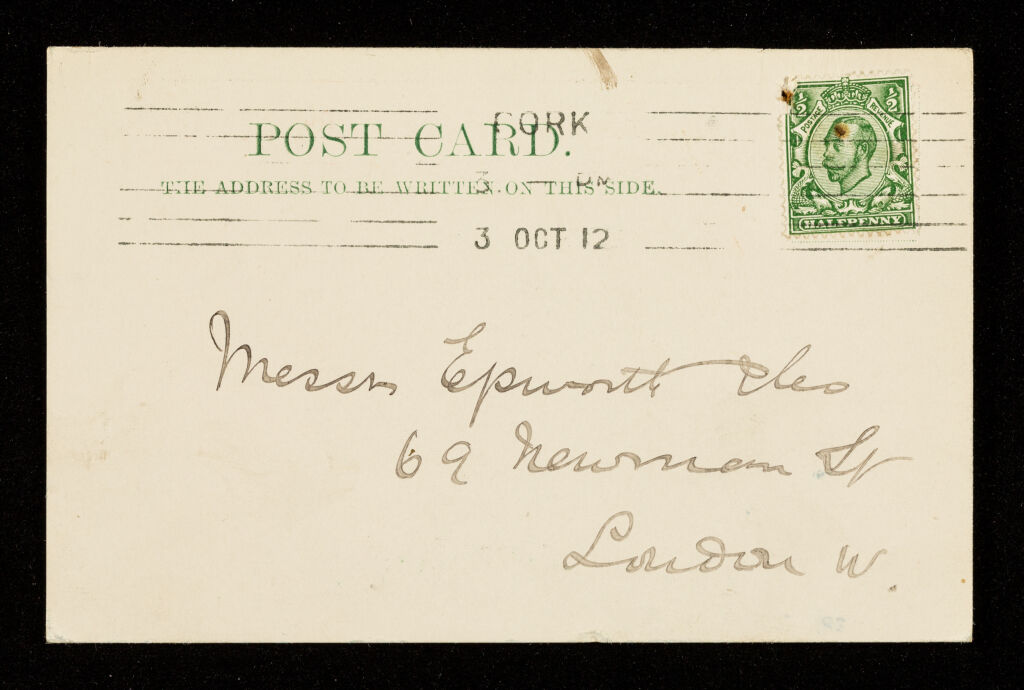 ½ ½
POSTAGE REVENUE
HALFPENNY
CORK
POST CARD.
3 PM
THE ADDRESS TO BE WRITTEN ON THIS SIDE.
3 OCT 12
Messrs Epworth &Co
69 Newman St
London W.